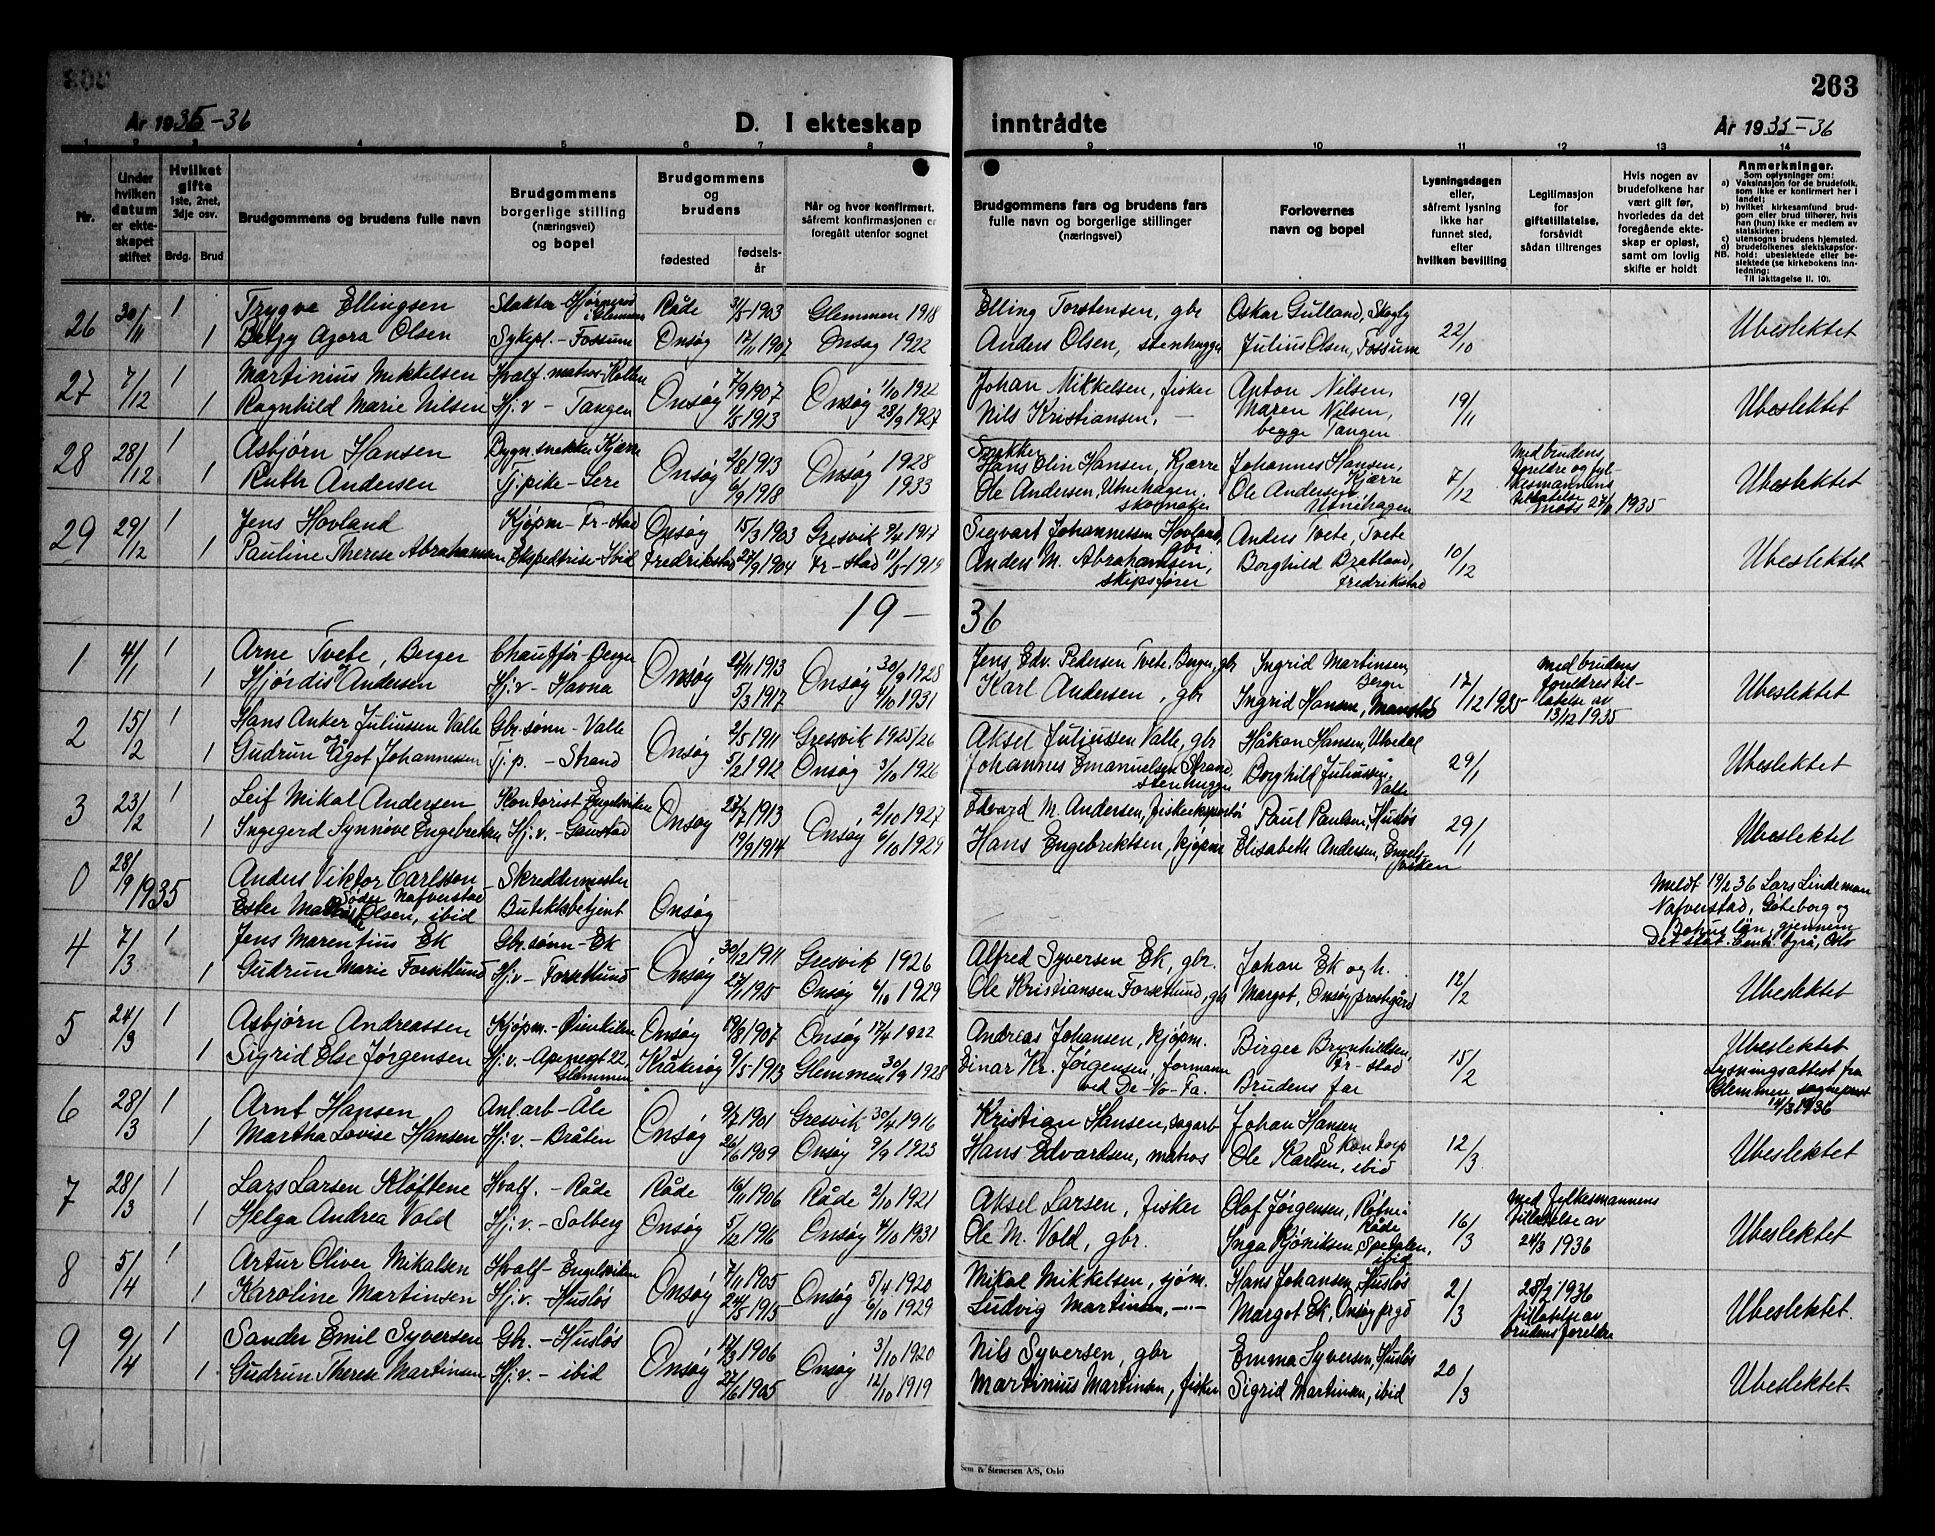 263
År 1935-36
D. I ekteskap inntrådte
År 1935-36
1 2 3 4 5 6 7 8 9 10 11 12 13 14
Nr.
Under hvilken datum er ekteskapet stiftet
Hvilket gifte 1ste, 2net, 3dje osv.
Brdg. Brud
Brudgommens og brudens fulle navn
Brudgommens borgerlige stilling (næringsvei) og bopel
Brudgommens og brudens
fødested
fødselsår
Når og hvor konfirmert, såfremt konfirmasjonen er foregått utenfor sognet
Brudgommens fars og brudens fars fulle navn og borgerlige stillinger (næringsvei)
Forlovernes navn og bopel
Lysningsdagen eller, såfremt lysning ikke har funnet sted, efter hvilken bevilling
Legitimasjon for giftetillatelse, forsåvidt sådan tiltrenges
Hvis nogen av brudefolkene har vært gift før, hvorledes da det foregående ekteskap er opløst, samt om lovlig skifte er holdt
Anmerkninger.
Som oplysninger om:
a) Vaksinasjon for de brudefolk, som ikke er konfirmert her i landet;
b) hvilket kirkesamfund brudgom eller brud tilhører, hvis han (hun) ikke er medlem av statskirken;
c) utensogns brudens hjemsted.
d) brudefolkenes slektskapsforhold: ubeslektede eller beslektede (se kirkebokens innledning:
NB. Til iakttagelse II. 10).
26 30/11 1 Trygve Ellingsen Slakter - Hjørnerød i Glemmen Råde 31/5 1903 Glemmen 1918 Elling Torstensen, gbr Oskar Gulland, Skogly 22/10 Ubeslektet
1 Betzy Agora Olsen Sykepl. - Fossum Onsøy 17/11 1907 Onsøy 1922 Anders Olsen, stenhugger Julius Olsen, Fossum
27 7/12 1 Martinius Mikkelsen Hvalf. matros - Kollen Onsøy 7/9 1907 Onsøy 1/10 1922 Johan Mikkelsen, fisker Anton Nilsen, 19/11 Ubeslektet
1 Ragnhild Marie Nilsen Hj.v - Tangen 1/8 1913 28/9 1927 Nils Kristiansen, - Maren Nilsen, begge Tangen
28 28/12 1 Asbjørn Hansen Bygn.snekker Kjærre Onsøy 2/8 1913 Onsøy 1928 Snekker Hans Elin Hansen, Kjærre Johannes Hansen, Kjærre 7/12 Med brudens foreldre og fylkesmannens tillatelse Ubeslektet
1 Ruth Andersen Tj.pike - Lere 6/9 1918 1933 Ole Andersen, Utnehagen, skomaker Ole Andersen Utnehagen
29 29/12 1 Jens Hovland Kjøpm - Fr-stad Onsøy 15/3 1903 Gresvik 9/4 1917 Sigvart Johannessen Hovland, gbr. Anders Tvete, Tvete 10/12 Ubeslektet
1 Pauline Therese Abrahamsen Ekspeditrise - ibid Fredrikstad 27/9 1904 Fr-stad 11/5 1919 Anders M. Abrahamsen, skipsfører Borghild Bratland, Fredrikstad
19 - 36
1 4/1 1 Arne Tvete, Berger Chauffør - Berger Onsøy 27/11 1913 Onsøy 30/9 1928 Jens Edv. Pedersen Tvete, Berger, gbr Ingrid Martinsen, Berger 17/12 1935 Med brudens foreldres tillatelse av 13/12 1935 Ubeslektet
1 Hjørdis Andersen Hj.v - Havna 5/3 1917 4/10 1931 Karl Andersen, gbr Ingrid Hansen, Manstad
2 15/2 1 Hans Anker Juliussen Valle Gbr.sønn - Valle Onsøy 2/5 1911 Gresvik 1925/26 Aksel Juliussen Valle, gbr Håkon Hansen, Ulvedal 29/1 Ubeslektet
1 Gudrun Ågot Johannessen Tj.p. - Strand 5/2 1912 Onsøy 3/10 1926 Johannes Emanuelsen Strand, stenhugger Borghild Juliussen, Valle
3 23/2 1 Leif Mikal Andersen Kontorist Engelviken Onsøy 27/7 1913 Onsøy 2/10 1927 Edvard M. Andersen, fiskeeksportør Paul Paulsen, Husløs 29/1 Ubeslektet
1 Ingegerd Synnøve Engebretsen Hj.v. - Gaustad 19/9 1914 6/10 1929 Hans Engebriktsen, kjøpm Elisabeth Andersen, Engelsviken
0 28/9 1935 Anders Viktor Carlsson Söder Nafverstad Skreddermester Meldt 19/2 36 Lars Lindeman Nafverstad, Göteborg og Bohuslän, gjennem Det stat. Centr. byrå, Oslo
Ester Marie Olsen, ibid Butikkbetjent Onsøy
4 7/3 1 Jens Marentius Ek Gbr.sønn - Ek Onsøy 30/12 1911 Gresvik 1926 Alfred Syversen Ek, gbr. Johan Ek og h. 12/2 Ubeslektet
1 Gudrun Marie Forsetlund Hj.v - Forsetlund 27/11 1915 Onsøy 6/10 1929 Ole Kristiansen Forsetlund, gbr Margot, Onsøy prestegård
5 24/3 1 Asbjørn Andreassen Kjøpm. - Øienkilen Onsøy 19/8 1907 Onsøy 17/4 1922 Andreas Johansen, kjøpm. Birger Brynhildsen, Fr-stad 15/2 Ubeslektet
1 Sigrid Else Jørgensen Hj.v. - Apenest 22, Glemmen Kråkerøy 9/5 1913 Glemmen 30/9 1928 Einar Kr. Jørgensen, formann ved De-No-Fa. Brudens far Lysningsattest fra Glemmen sogneprest 14/3 1936
6 28/3 1 Arnt Hansen Anl.arb - Åle Onsøy 9/2 1901 Gresvik 30/4 1916 Kristian Hansen, sagarb Johan Hansen Skontorp 12/3 Ubeslektet
1 Martha Lovise Hansen Hj.v. - Bråten 26/6 1909 Onsøy 9/9 1923 Hans Edvardsen, matros Ole Karlsen, ibid
7 28/3 1 Lars Larsen Kløftene Hvalf. - Råde Råde 16/11 1906 Råde 2/10 1921 Aksel Larsen, fisker Olaf Jørgensen, Råde 16/3 Med fylkesmannens tillatelse av 24/3 1936 Ubeslektet
1 Helga Andrea Vold Hj.v. - Solberg Onsøy 5/12 1916 Onsøy 4/10 1931 Ole M. Vold, gbr. Inga Spetalen, ibid
8 5/4 1 Artur Oliver Mikalsen Hvalf - Engelviken Onsøy 7/11 1905 Onsøy 5/4 1920 Mikal Mikkelsen, sjøm. Hans Johansen, Husløs 2/3 28/2 1936 tillatelse av brudens foreldre Ubeslektet.
1 Karoline Martinsen Hj.v. - Husløs 24/5 1915 6/10 1929 Ludvig Martinsen, -"- Margot Ek, Onsøy prgd
9 9/4 1 Sander Emil Syversen Gbr. - Husløs Onsøy 17/3 1906 Onsøy 3/10 1920 Nils Syversen, gbr Emma Syversen, Husløs 20/3 Ubeslektet
1 Gudrun Therese Martinsen Hj.v. - ibid 27/6 1905 12/10 1919 Martinius Martinsen, fisker Sigrid Martinsen, ibid
Sem & Stenersen A/S, Oslo